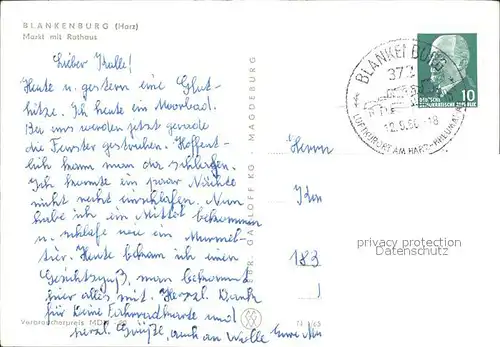 BLANKENBURG (Harz)
Markt mit Rathaus
Lieber Kalle!
Heute u. gestern eine Glut-
hitze. Ich heute im Moorbad.
Bei uns werden jetzt gerade
die Fenster gestrichen. Hoffent-
lich kann man da schlafen.
Ich konnte ein paar Nächte
nicht recht einschlafen. Nun
habe ich ein Mittel bekommen
u. schlafe wie ein Murmel-
tier. Heute bekam ich einen
Gesichtsguß, man bekommt
hier alles mit. Herzl. Dank
für Deine Fahrradkarte und
herzl. Grüße, auch an
Verbraucherpreis MDN
MAGDEBURG
N 1/65
BLANKENBURG
372
LUFTKURORT AM HARZ
DEUTSCHE
DEMOKRATISCHE REPUBLIK
10
Herrn
183
privacy protection
Datenschutz